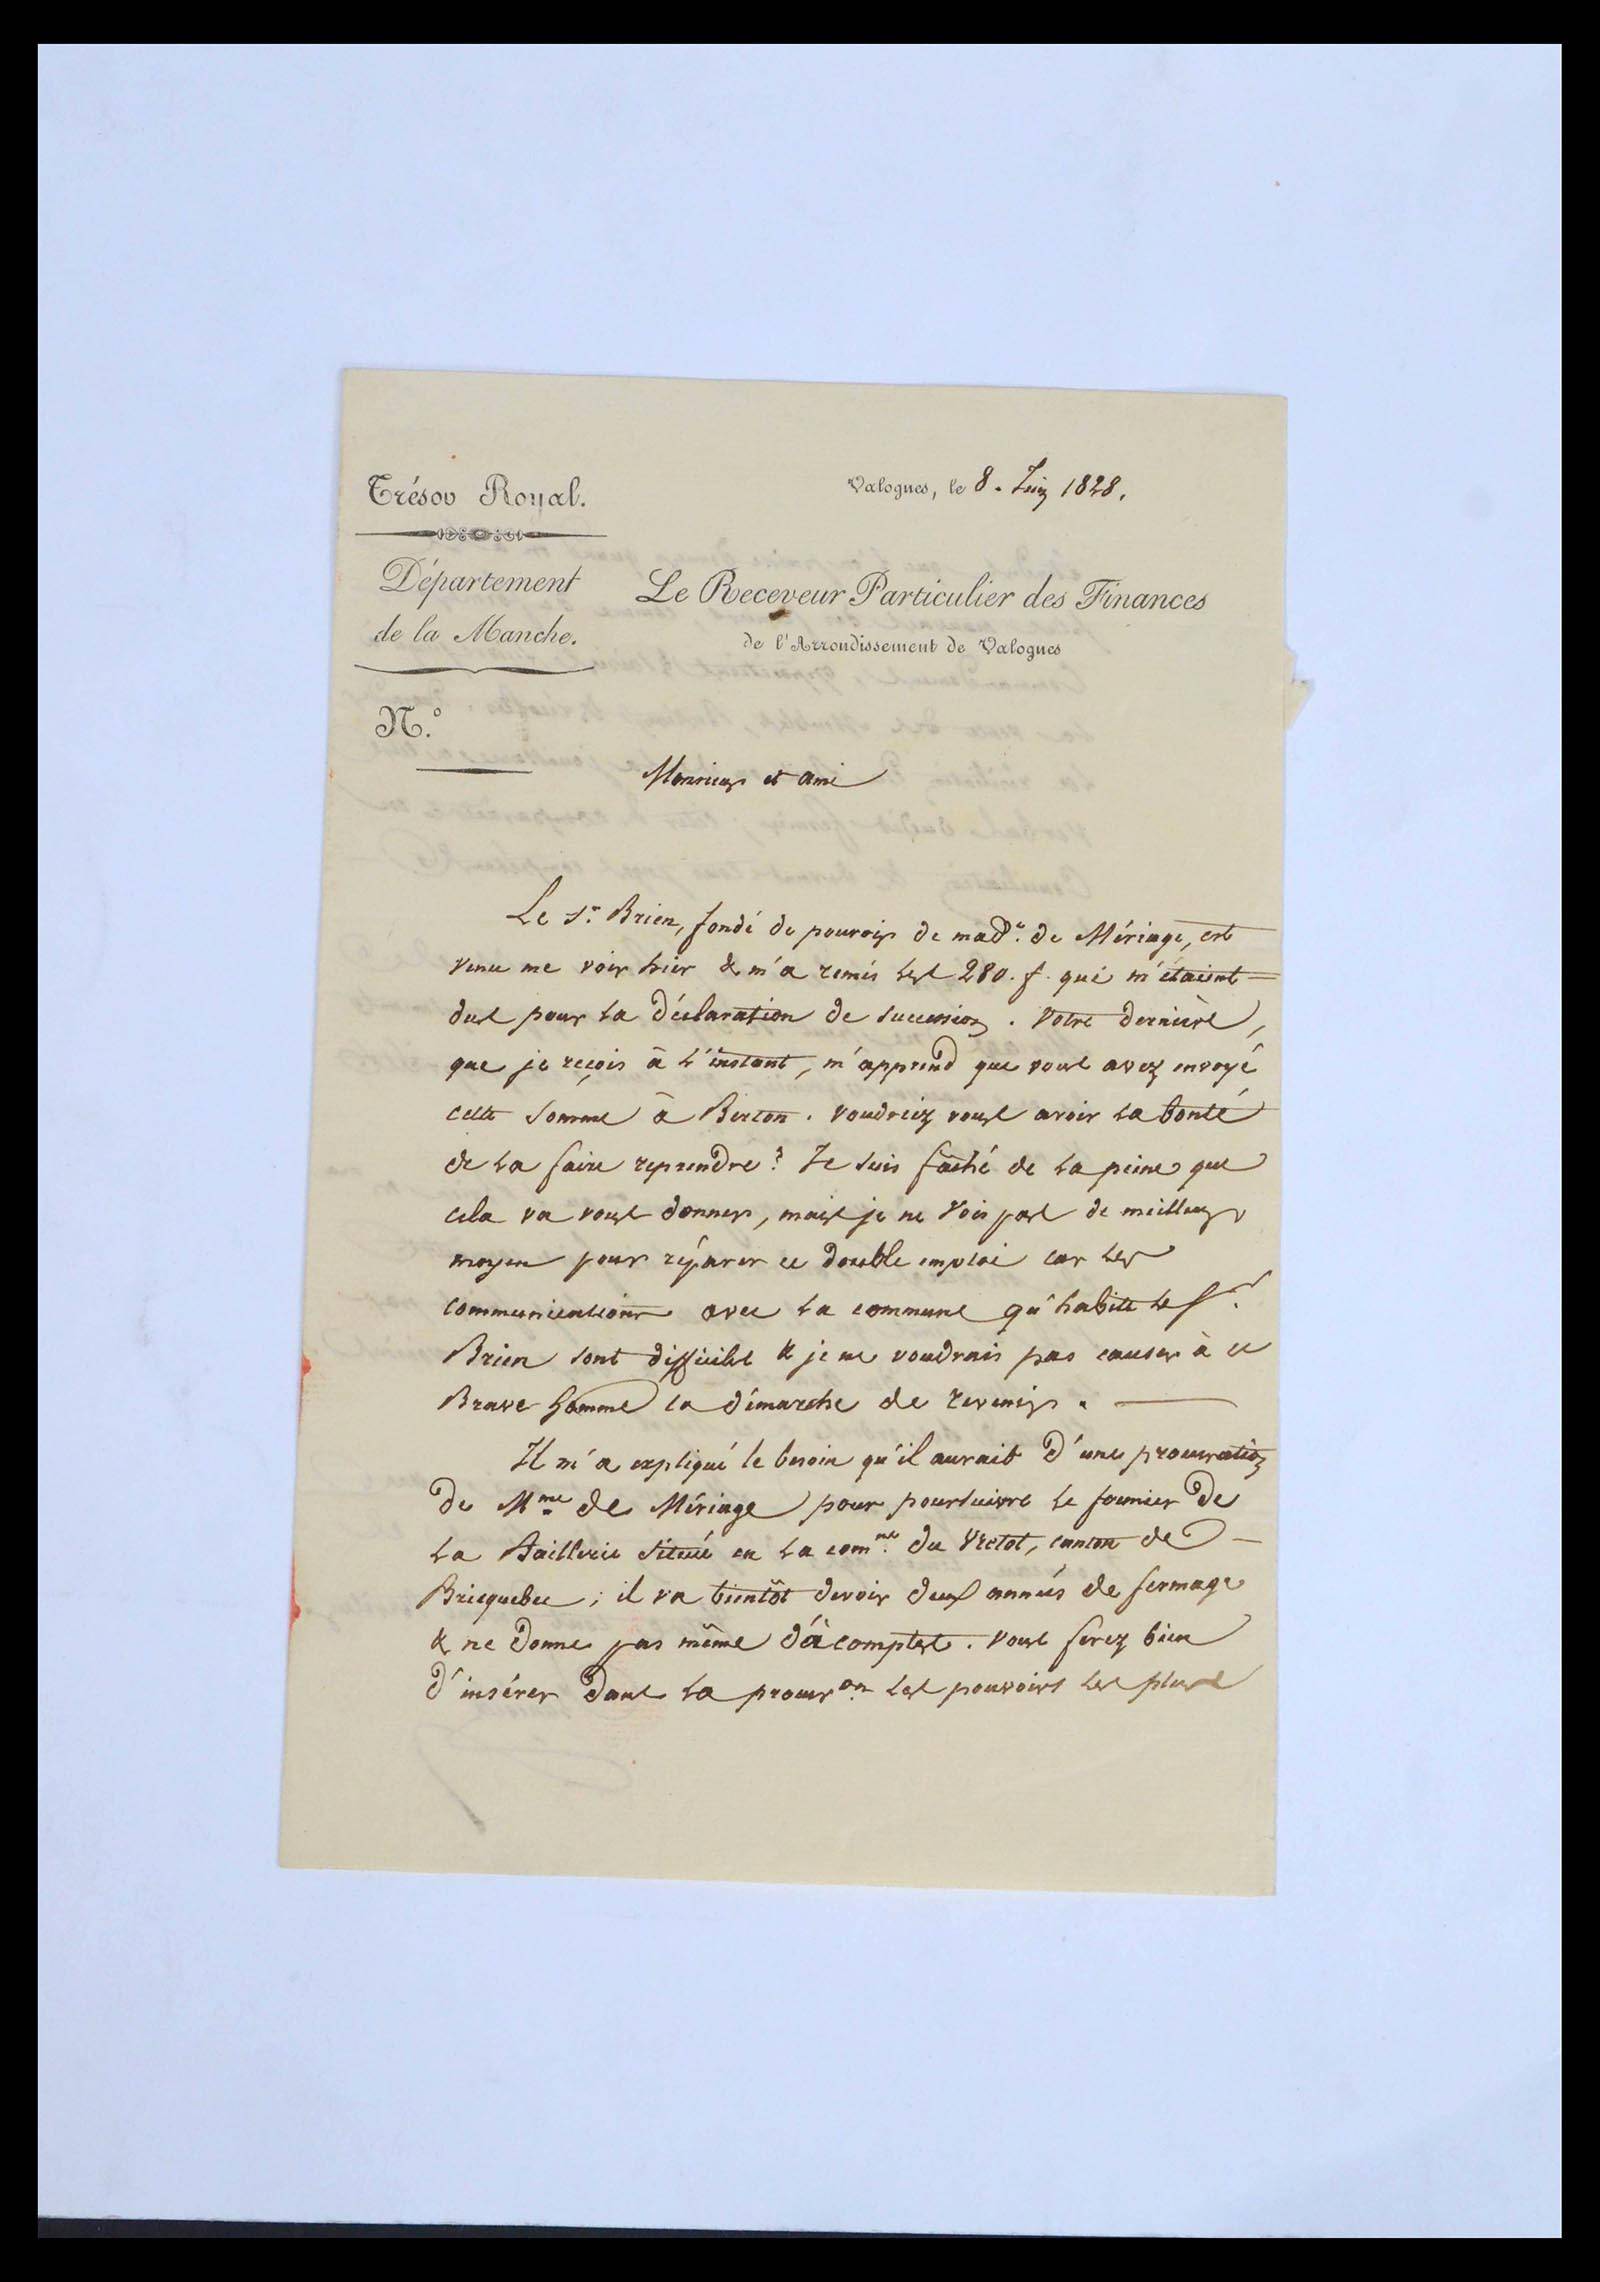 Trésor Royal.
Valognes, le 8. Juin 1828.
Département
de la Manche.
Le Receveur Particulier des Finances
de l'Arrondissement de Valognes
N.o
Monsieur et ami
Le Sr. Brien, fondé de pouvoir de made. de Mériage, est
venu me voir hier & m'a remis les 280. f. qui m'étaient
dus pour la déclaration de succession. Votre dernière,
que je reçois à l'instant, m'apprend que vous avez envoyé
cette somme à Berton. voudriez vous avoir la bonté
de la faire reprendre? Je suis fâché de la peine que
cela va vous donner, mais je ne vois pas de meilleur
moyen pour réparer ce double emploi car les
communications avec la commune qu'habite le Sr.
Brien sont difficiles & je ne voudrais pas causer à ce
Brave homme la démarche de revenir.
Il m'a expliqué le besoin qu'il aurait d'une procuration
de Mme. de Mériage pour poursuivre le fermier de
la située en la comne. du Vretot, canton de
Bricquebec; il va bientôt devoir deux années de fermage
& ne donne pas même d'à comptes. vous ferez bien
d'insérer dans la procuron. les pouvoirs les plus